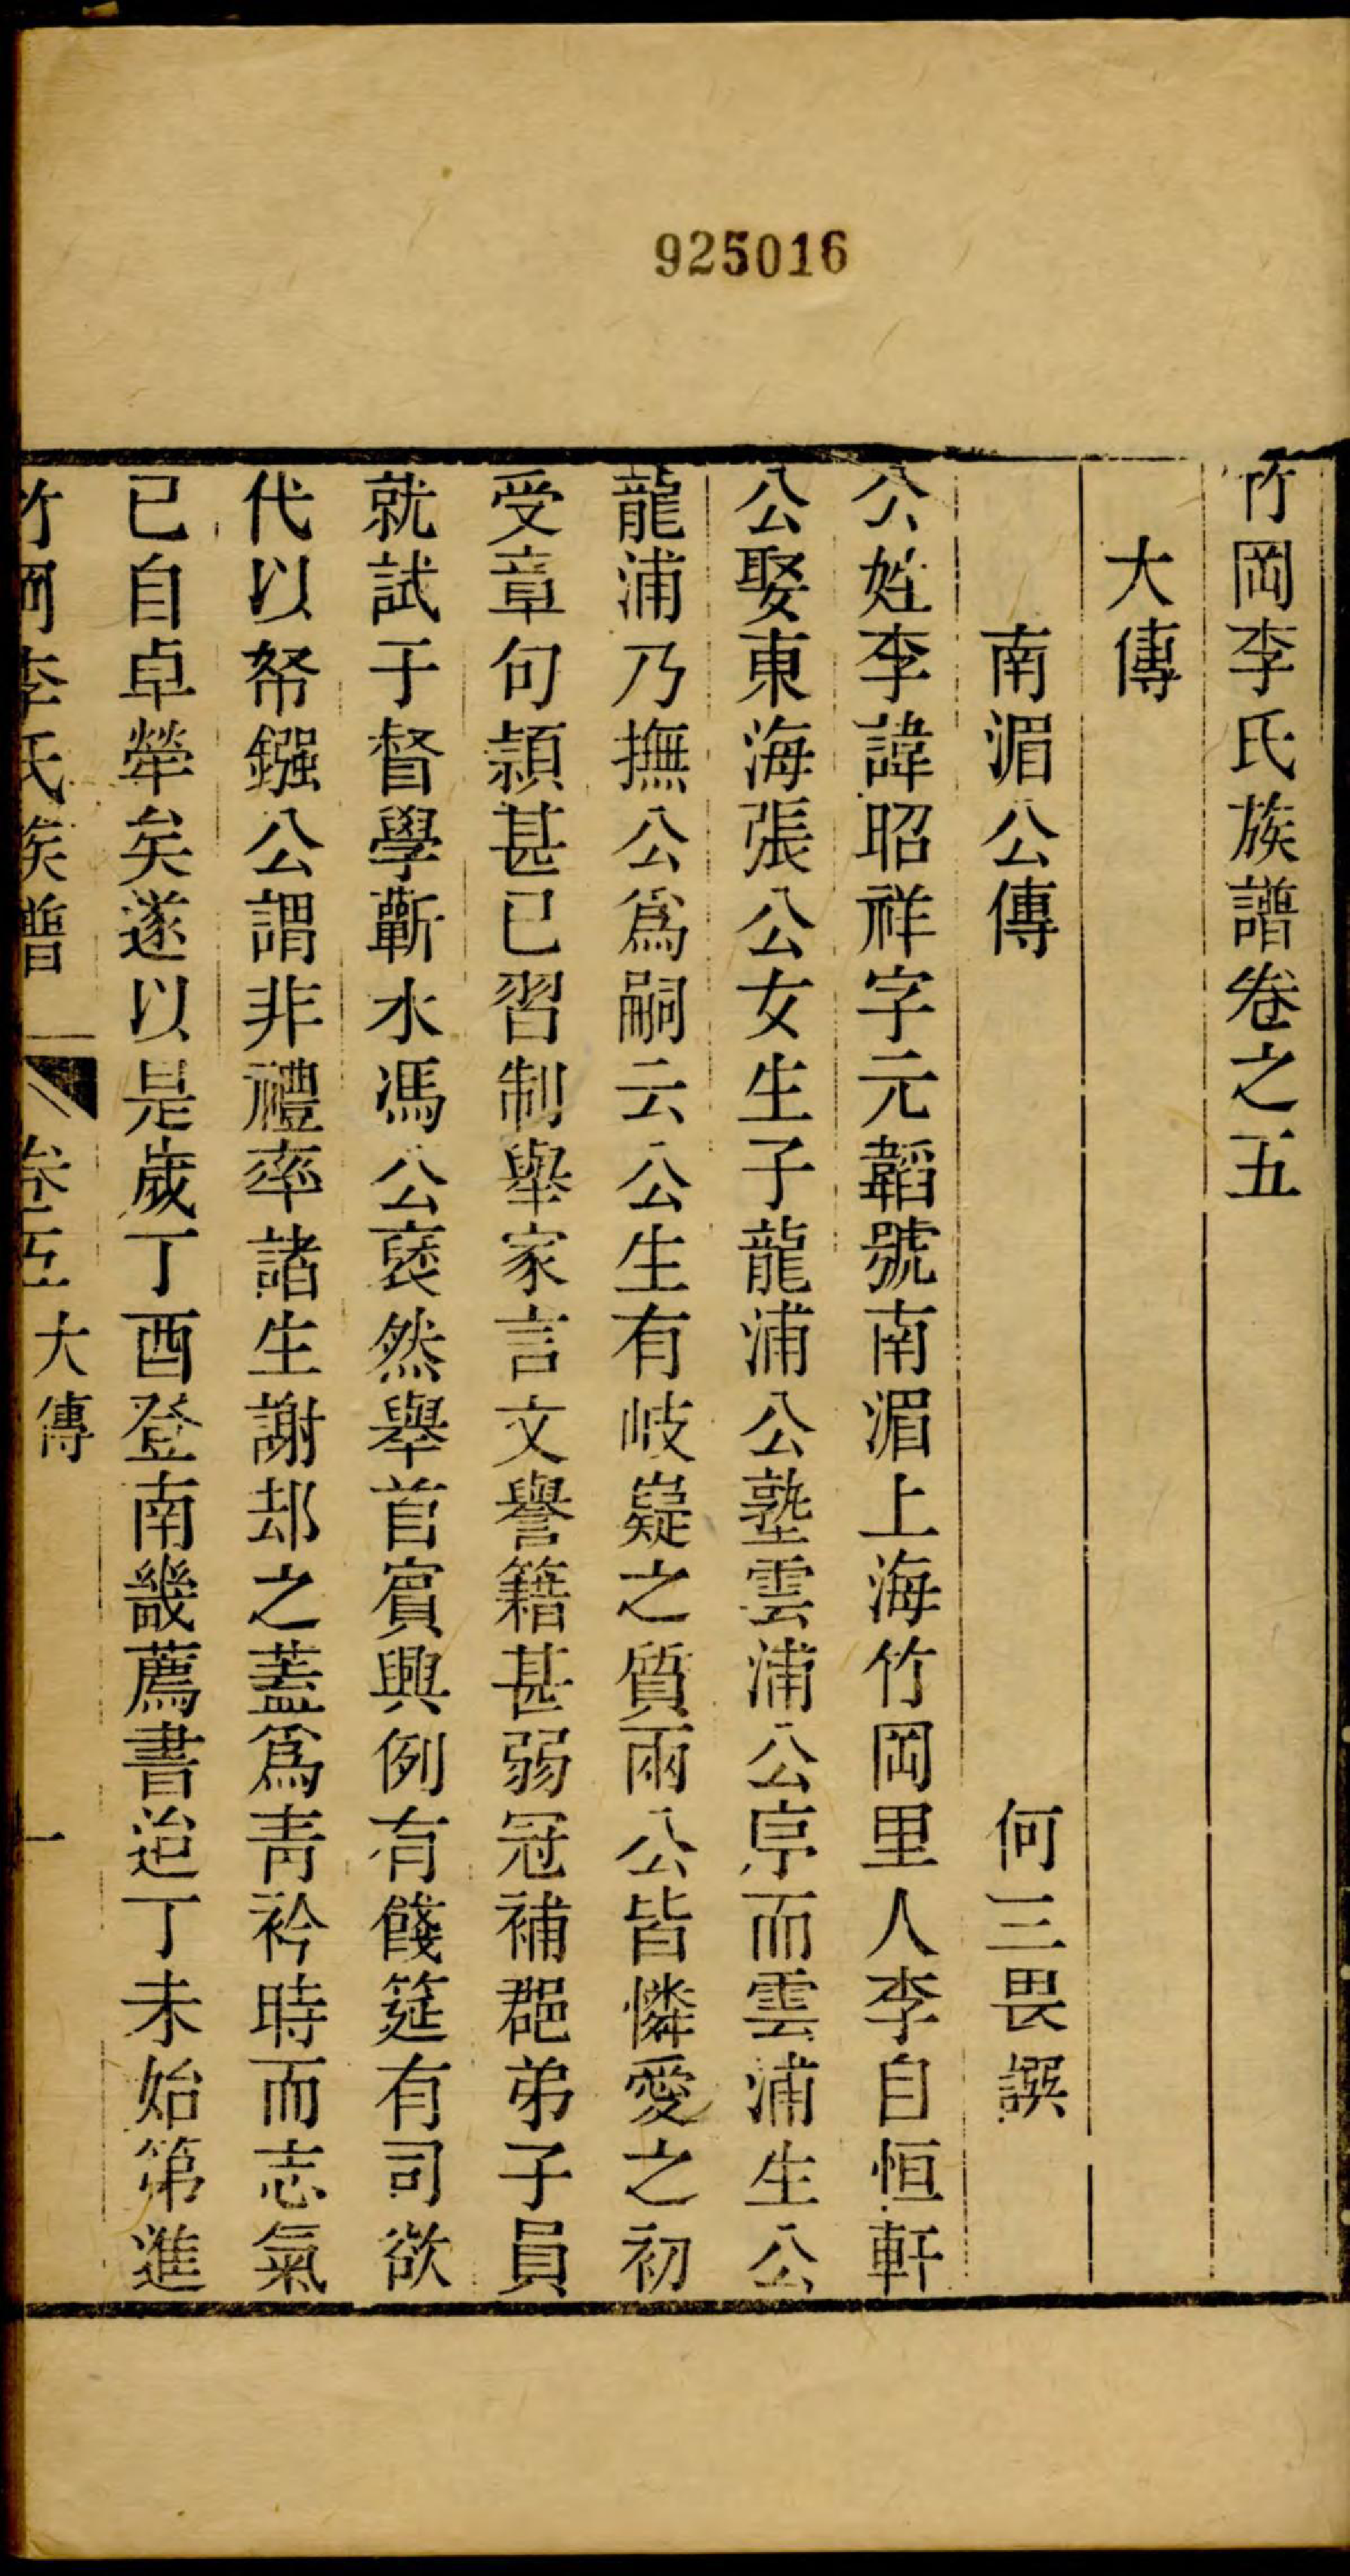 925016
竹岡李氏族譜卷之五
大傳
南湄公傳
何三畏譔
公姓李諱昭祥字元韜號南湄上海竹岡里人李自恒軒
公娶東海張公女生子龍浦公塾雲浦公序而雲浦生公
龍浦乃撫公爲嗣云公生有岐嶷之質兩公皆憐愛之初
受章句頴甚已習制舉家言文譽籍甚弱冠補郡弟子員
就試于督學蘄水馮公裒然舉首賓興例有餞筵有司欲
代以帑鏹公謂非禮率諸生謝却之蓋爲靑衿時而志氣
已自卓犖矣遂以是歲丁酉登南畿薦書迨丁未始第進
竹岡李氏族譜 卷五 大傳 一